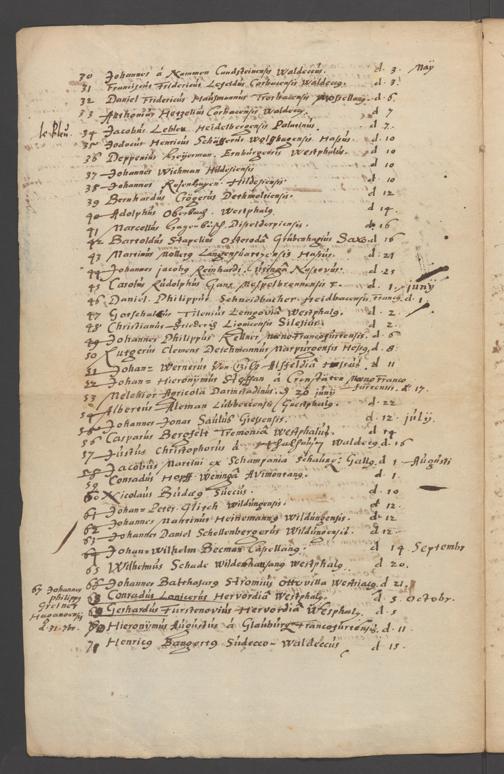 30 Johannes á Nammen Candsteinensis Waldeccus. d. 3. Maÿ
31 Franciscus Fridericus Corbacensis Waldecg. d. 3.
32 Daniel Fridericus Trorbacensis Mosellang. d. 6
33 Anthonius Corbacensis Waldecg. d 7
le Bleu.
34 Jacobus Lebleu Heidelbergensis Palatinus. d. 7.
35 Jodocus Henricus Hassus. d. 10
36 Deppenius Westphalus. d. 10
37 Johannes Wichman Hildesiensis d. 10
38 Johannes Rosenhagen Hildesiensis d. 10
39 Bernhardus Crögerus Dethmoltensis. d 12
40 Adolphus Oberbach. Westphalg. d 14
41 Marcellus d. 16
42 Bartoldus Stapelius Osterodâ Grubenhagius Saxo. d. 16
43 Martinus Mollerg Hassus. d. 21
44 Johannes Jacobg Reinhardi d. 25
45 Carolus Rudolphus Ganz d. 1. junÿ
46 Daniel Philippus Schneidbacher Heidbacensis d. 1
47 Gotschalcus Tilenius Lemgoviâ Westphalg. d. 2
48 Christianus Lignicensis Silesius d 2
49 Johannes Philippus Kellner mœnofrancofurtensis. d. 6
50 Rutgerus Clemens Deichmannus Marpurgensis Hassg. d. 8
51 Johan Wernerus Von Gilz Alsfeldiâ Hassus. d 11
52 Johan Hieronymus Steffan á Cronstäten MœnoFranco
furtensis. d. 17.
53 Melchior Agricola Darmstadinus. d 20 junÿ
54 Albertus Aleman Lübbecensis Guestphalg. d. 22
55 Johannes Jonas Saulus Giessensis. d. 12. julÿ.
56 Casparus Bergfelt Tremoniâ Westphalus. d 14
57 Justus Christophorus á Waldecg d. 16
58 Jacobus Martini ex Schampania Gallg. d 1 Augusti
59 Conradus Hopff A vimontang. d. 1.
60 Nicolaus Budæg Suecus. d. 10
61 Johan Peter Glitsch Wildungensis. d 12
62 Johannes Martinus Heinemanng Wildungensis. d 12
63 Johannes Daniel Schellenbergerus Wildungensis. d 12
64 Johan Wilhelm Becman Casellang. d 14 Septembr
65 Wilhelmus Schade Wildeshausang Westphalg d 20.
66 Johannes Balthasarg Stromius d 21.
67 Johannes
philippg
Greiner
Hanoensis
d. 21. 7br.
68 Conradus Lonicerus Hervordiâ Westphalg. d. 5. Octobr.
69 Gerhardus Furstenovius Hervordiâ Westphalg. d. 5
70 Hieronymus Augustus á Glauburg Francofurtensis. d. 11
71 Henricg Bangertg Sudecco-Waldeccus d. 15.